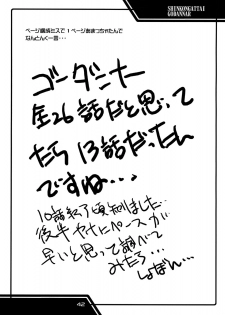 SHINKONGATTAI
GODANNAR
ページ構成ミスで1ページあまっちゃたんで
なんとんくー言・・・
ゴーダンナー
全26話だと思って
たら13話だったん
ですね・・・
10話終了頃知りました
後半ヤケにペースが
早いと思って調べて
みたら・・・
しょぼん・・・
42